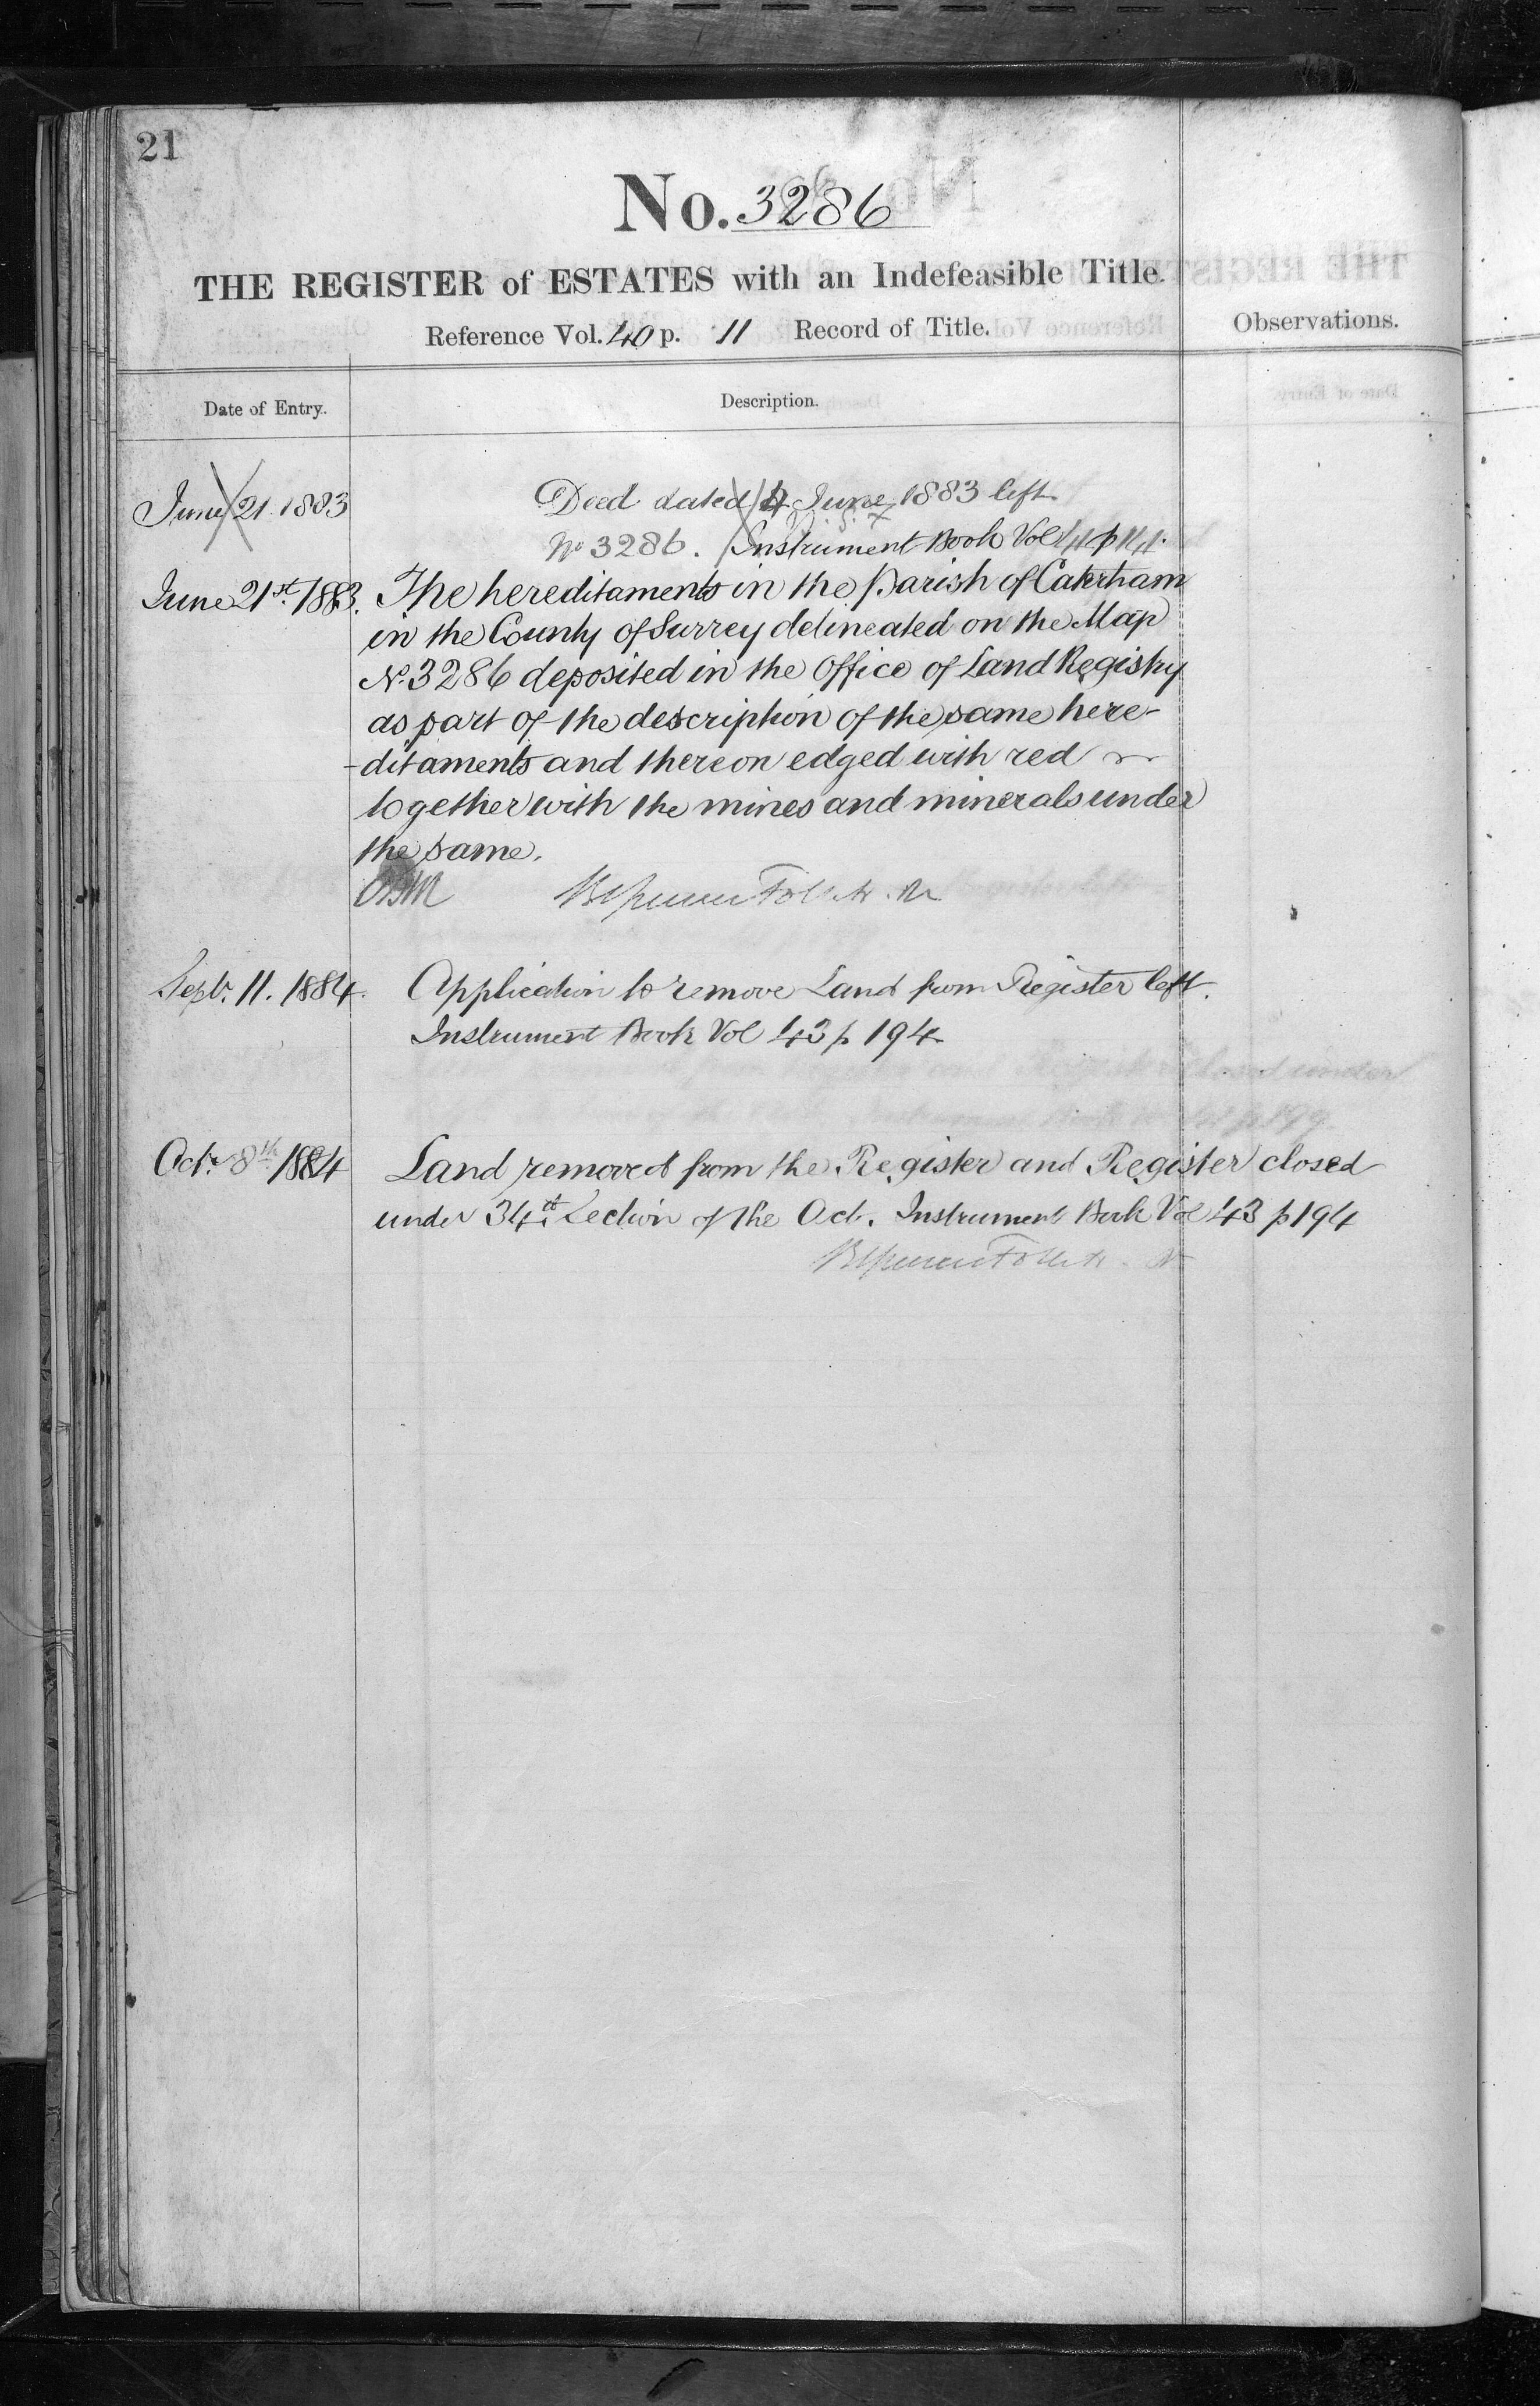 21
No. 3286
THE REGISTER of ESTATES with an Indefeasible Title.
Reference Vol. 40 p. 11 Record of Title.
Observations.
Date of Entry.
Description.
June 21 1883
Deed dated 4 June 1883 left
No 3286. Instrument Book Vol
June 21st. 1883. The hereditaments in the Parish of Caterham
in the County of Surrey delineated on the Map
No. 3286 deposited in the Office of Land Registry
as part of the description of the same here-
-ditaments and thereon edged with red
together with the mines and minerals under
the same.
Sept. 11. 1884. Application to remove Land from Register left.
Instrument Book Vol 43 p 194
Oct. 8th 1884 Land removed from the Register and Register closed
under 34th Section of the Act. Instrument Book Vol 43 p 194